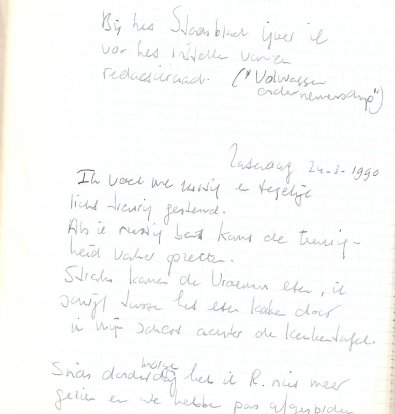 Bij het Stadsblad ijver ik
voor het instellen van een
redactieraad. ("Volwassen
ondernemerschap")
Zaterdag 24-3-1990
Ik voel me rustig en tegelijk
licht treurig gestemd.
Als ik rustig ben kan de treurig-
heid vanzelf opzetten.
Straks komen de vrouwen eten, ik
schrijf tussen het eten koken door
in mijn schort achter de keukentafel.
Sinds donderdag heb ik R. niet meer
gezien en we hebben pas afgesproken